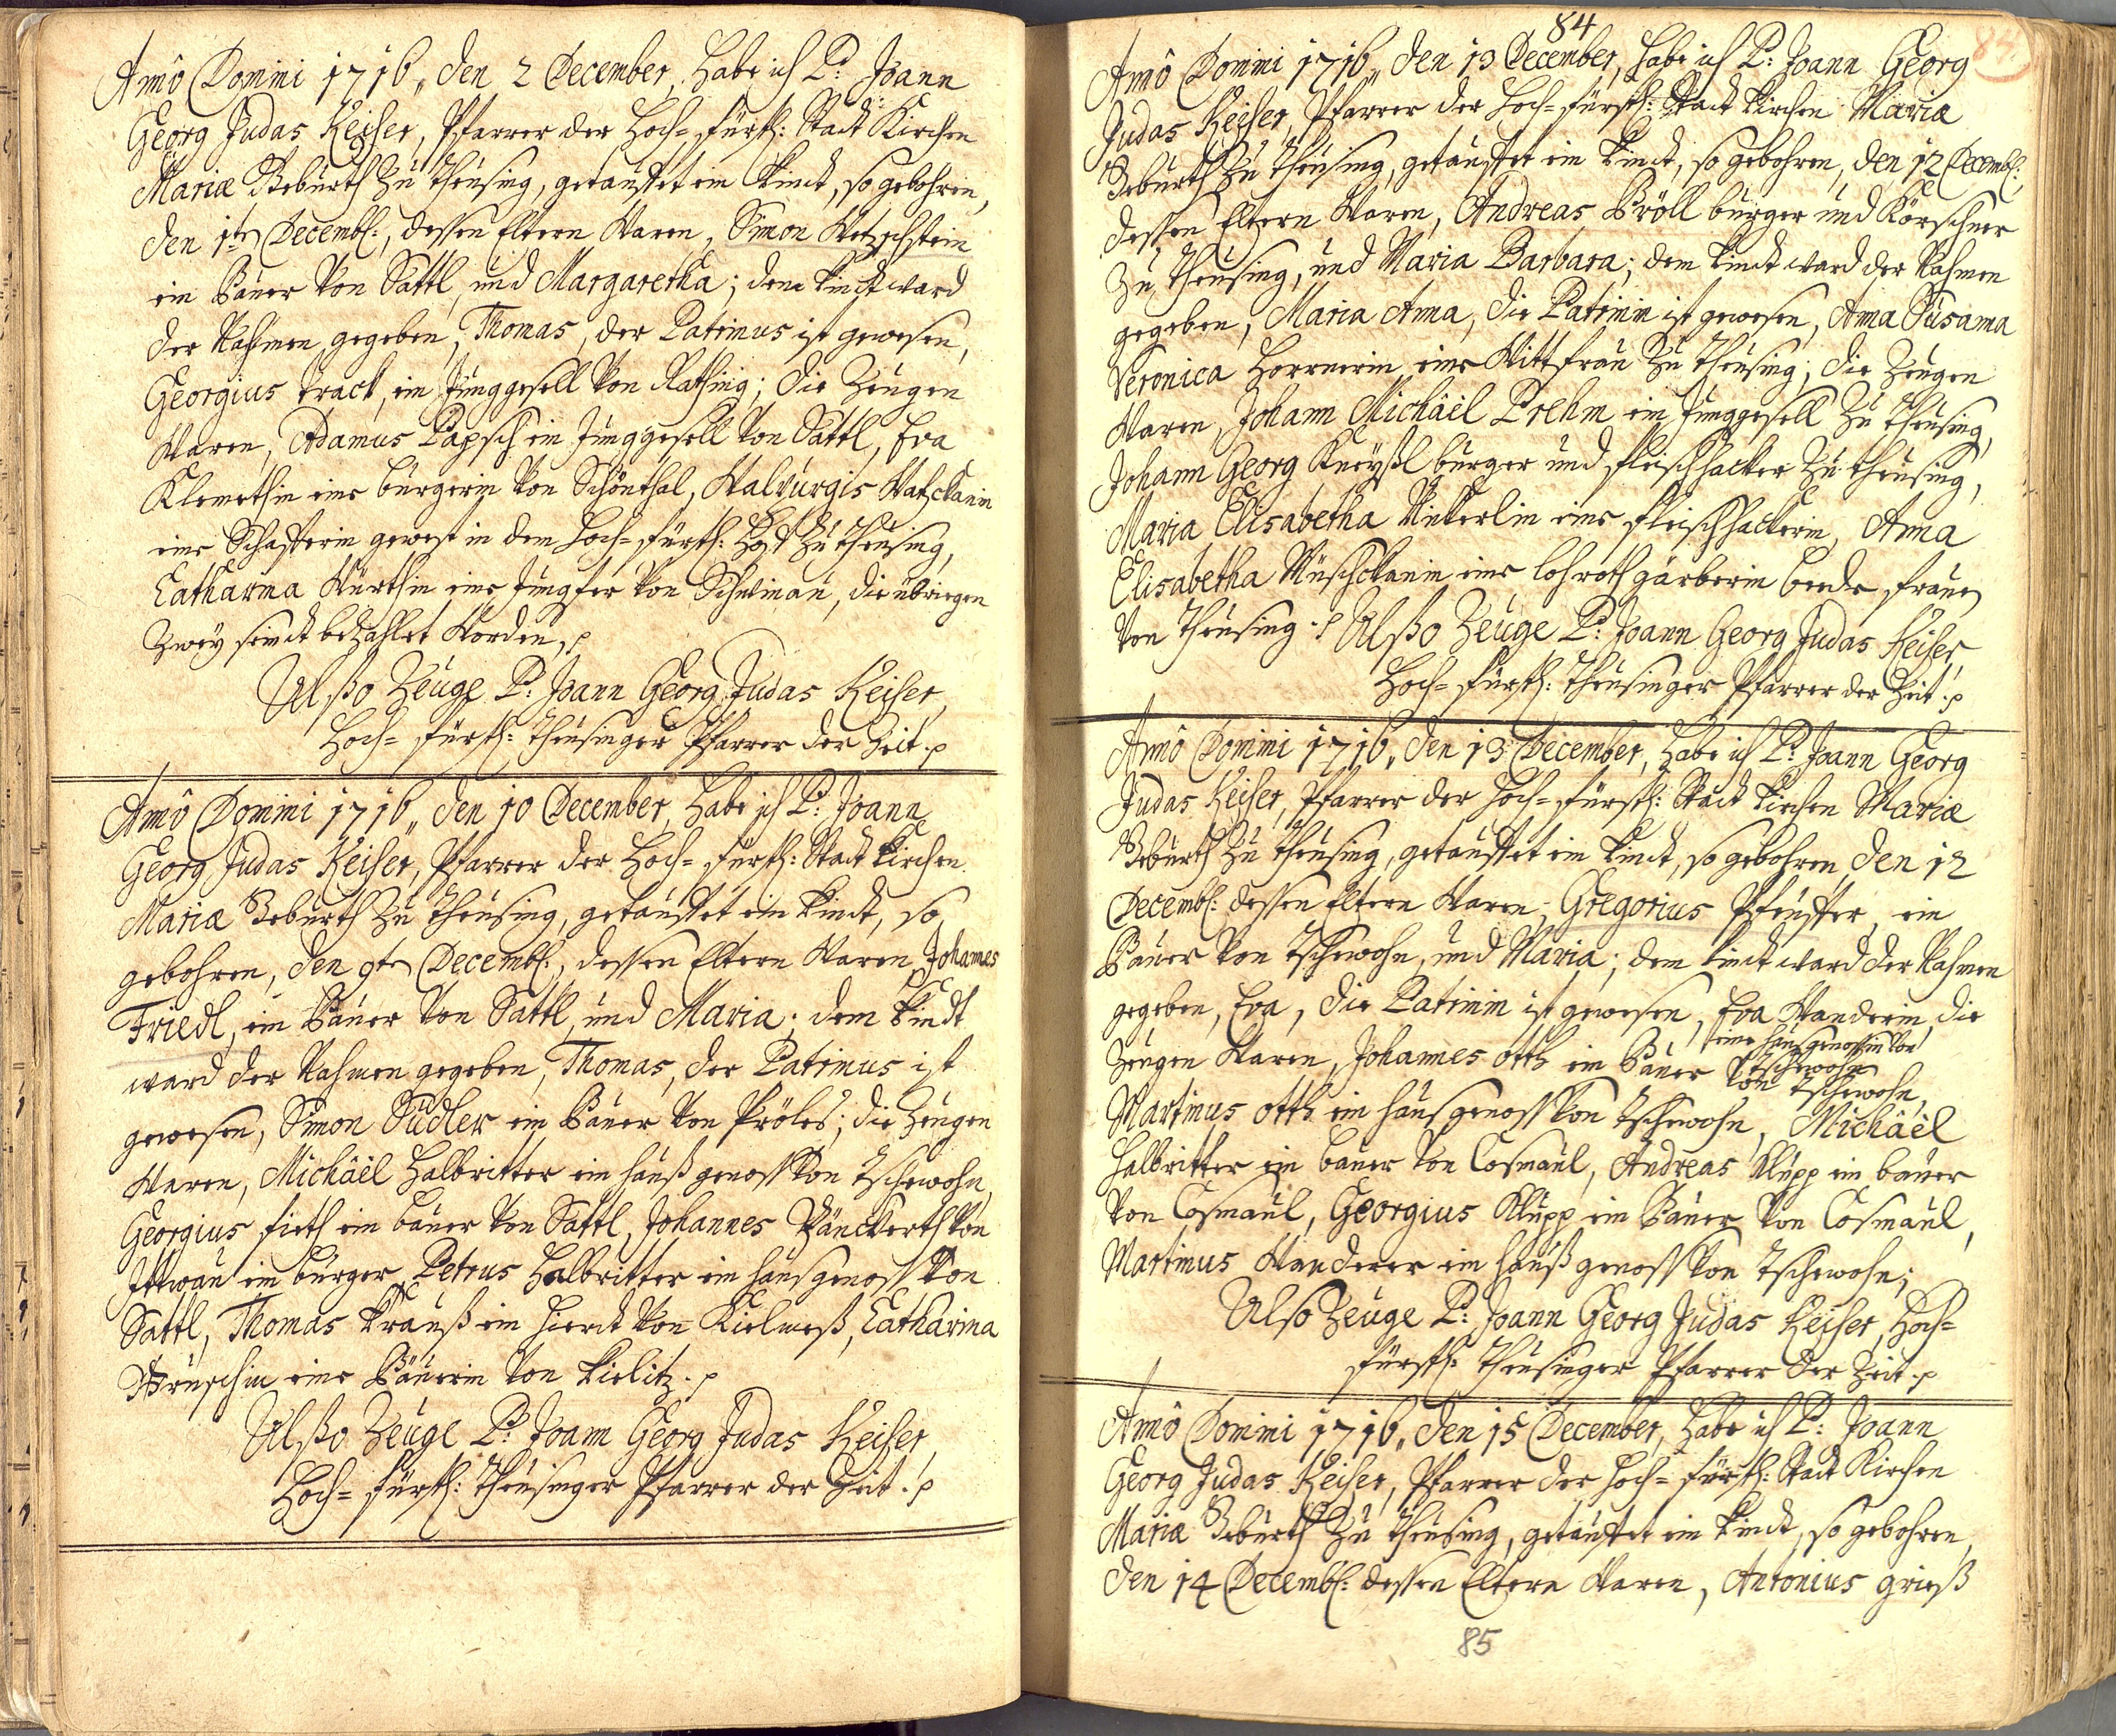 Añô Domini 1716, den 2 December, habe ich P: Joann
Georg Judas Keiser, Pfarrer der Hoch=fürstl: Stadt Kirchen
Mariæ Geburth zu Theusing, getauffet ein Kindt, so gebohren,
den 1ten Decembr:, dessen Eltern Waren, Simon Wetzschstein
ein Bauer von Sattl, und Margaretha; dem Kindt ward
der Nahmen gegeben, Thomas, der Patrinus ist gewesen,
Georgius Track, ein Junggesell von Rathsing; die Zeugen
Waren, Adamus Papsch ein Junggesell von Sattl, Eva
Klemethin eine bürgerin von Schönthal, Walburgis Watzckanin
eine Schafferin gewest in dem Hoch=fürstl: Hof zu Theusing,
Catharina Würthin eine Jungfer von Schwinau, die übriegen
Zwey seindt bezahlet Worden, p
Alßo Zeuge P: Joann Georg Judas Keiser,
Hoch=fürstl: Theusinger Pfarrer der Zeit. p
Añô Domini 1716, den 10 December, habe ich P: Joann
Georg Judas Keiser, Pfarrer der Hoch=fürstl: Stadt Kirchen
Mariæ Geburth zu Theusing, getauffet ein Kindt, so
gebohren, den 9ten Decembr:, dessen Eltern Waren, Johannes
Friedl, ein Bauer von Sattl, und Maria; dem Kindt
ward der Nahmen gegeben, Thomas, der Patrinus ist
gewesen, Simon Sudler ein Bauer von Pröles; die Zeugen
Waren, Michäel Halbritter ein haußgenoss von Tschewohn,
Georgius fieth ein bauer von Sattl, Johannes Pänckerth von
Ittwau ein bürger, Petrus Halbritter ein hausgenoss von
Sattl, Thomas Krauß ein hierdt von Kielmeß, Catharina
eine Bäuerin von Kielitz. p
Alßo Zeuge P: Joann Georg Judas Keiser,
Hoch=fürstl: Theusinger Pfarrer der Zeit. p
84
84.
Añô Domini 1716, den 13 December, habe ich P: Joann Georg
Judas Keiser, Pfarrer der Hoch=fürstl: Stadt Kirchen Mariæ
Geburth zu Theusing, getauffet ein Kindt, so gebohren, den 12 Decembr:,
dessen Eltern Waren, Andreas Pröll bürger und Körschner
zu Theusing, und Maria Barbara; dem Kindt ward der Nahmen
gegeben, Maria Anna, die Patrinin ist gewesen, Anna Susanna
Veronica Horrnerin eine Wittfrau zu Theusing; die Zeugen
Waren, Johann Michäel Prehm ein Junggesell zu Theusing,
Johann Georg Kneyßl bürger und fleischhacker zu Theusing,
Maria Elisabetha Winterlin eine fleischhackerin, Anna
Elisabetha Müschckanin eine lohrothgärberin beede frauen
von Theusing. p Alßo Zeuge P: Joann Georg Judas Keiser,
Hoch=fürstl: Theusinger Pfarrer der Zeit. p
Añô Domini 1716, den 13 December, habe ich P: Joann Georg
Judas Keiser, Pfarrer der Hoch=fürstl: Stadt Kirchen Mariæ
Geburth zu Theusing, getauffet ein Kindt, so gebohren den 12
Decembr: dessen Eltern Waren, Gregorius Pfeuffer, ein
Bauer von Tschewohn, und Maria; dem Kindt ward der Nahmen
gegeben, Eva, die Patrinin ist gewesen, Eva Wanderin, die
eine hausgenossin von Tschewohn
Zeugen Waren, Johannes Otth ein Bauer von Tschewohn,
Martinus Otth ein hausgenoss von Tschewohn, Michäel
Halbritter ein bauer von Cosmaul, Andreas Klupp ein bauer
von Cosmaul, Georgius Klupp ein Bauer von Cosmaul,
Martinus Wanderer ein haußgenoss von Tschewohn;
Also Zeuge P: Joann Georg Judas Keiser, Hoch=
fürstl: Theusinger Pfarrer der Zeit. p
Añô Domini 1716, den 15 December, habe ich P: Joann
Georg Judas Keiser, Pfarrer der Hoch=fürstl: Stadt Kirchen
Mariæ Geburth zu Theusing, getauffet ein Kindt, so gebohren,
den 14 Decembr: dessen Eltern Waren, Antonius Grieß
85